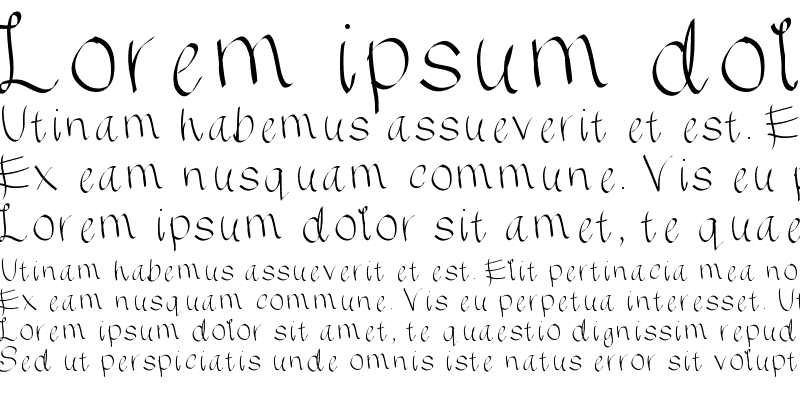 Lorem ipsum dol
Utinam habemus assueverit et est. E
Ex eam nusquam commune. Vis eu p
Lorem ipsum dolor sit amet, te quae
Utinam habemus assueverit et est. Elit pertinacia mea no
Ex eam nusquam commune. Vis eu perpetua interesset. Ut
Lorem ipsum dolor sit amet, te quaestio dignissim repud
Sed ut perspiciatis unde omnis iste natus error sit volupt